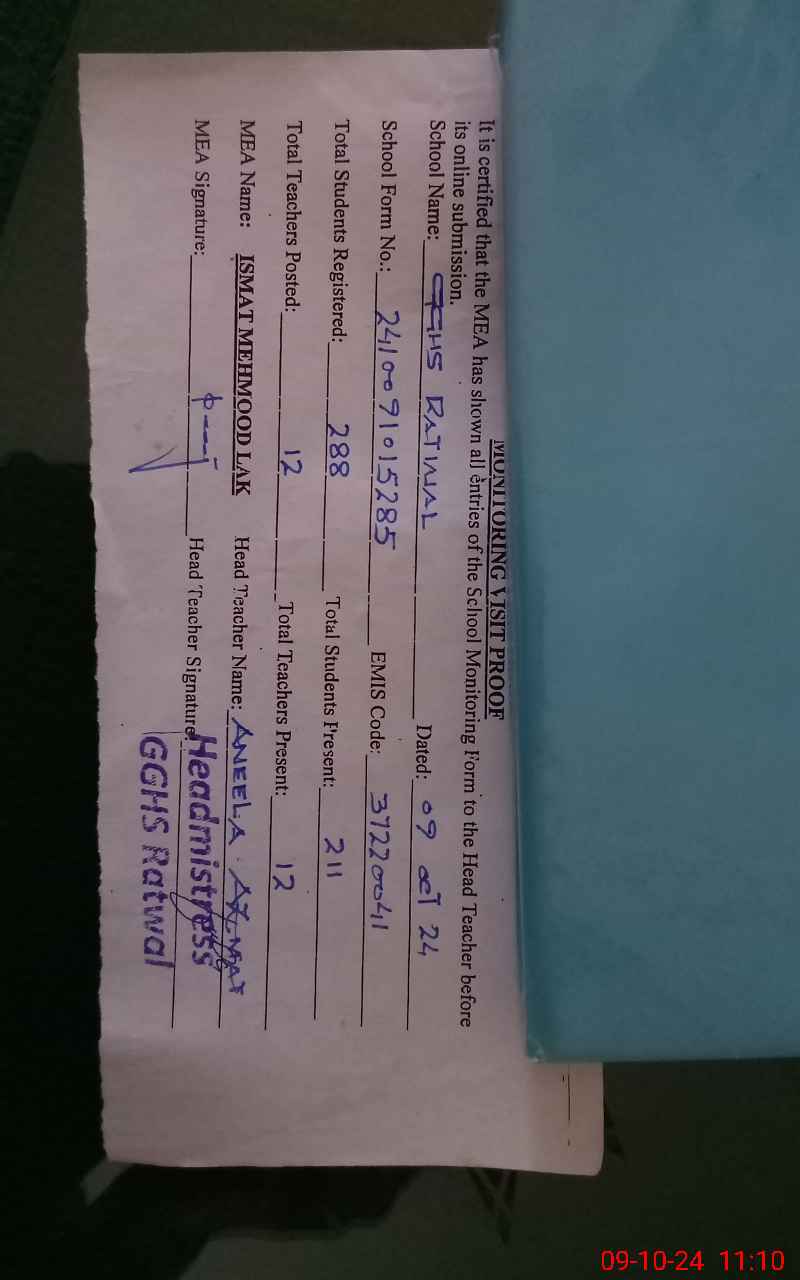 MONITORING VISIT PROOF
It is certified that the MEA has shown all entries of the School Monitoring Form to the Head Teacher before
its online submission.
School Name: GGHS RATWAL Dated: 09 OCT 24
School Form No.: 241009101 5285 EMIS Code: 37220041
Total Students Registered: 288 Total Students Present: 211
Total Teachers Posted: 12 Total Teachers Present: 12
MEA Name: ISMAT MEHMOOD LAK Head Teacher Name: ANEELA
MEA Signature: Head Teacher Signature:
Headmistress
GGHS Ratwal
09-10-24 11:10